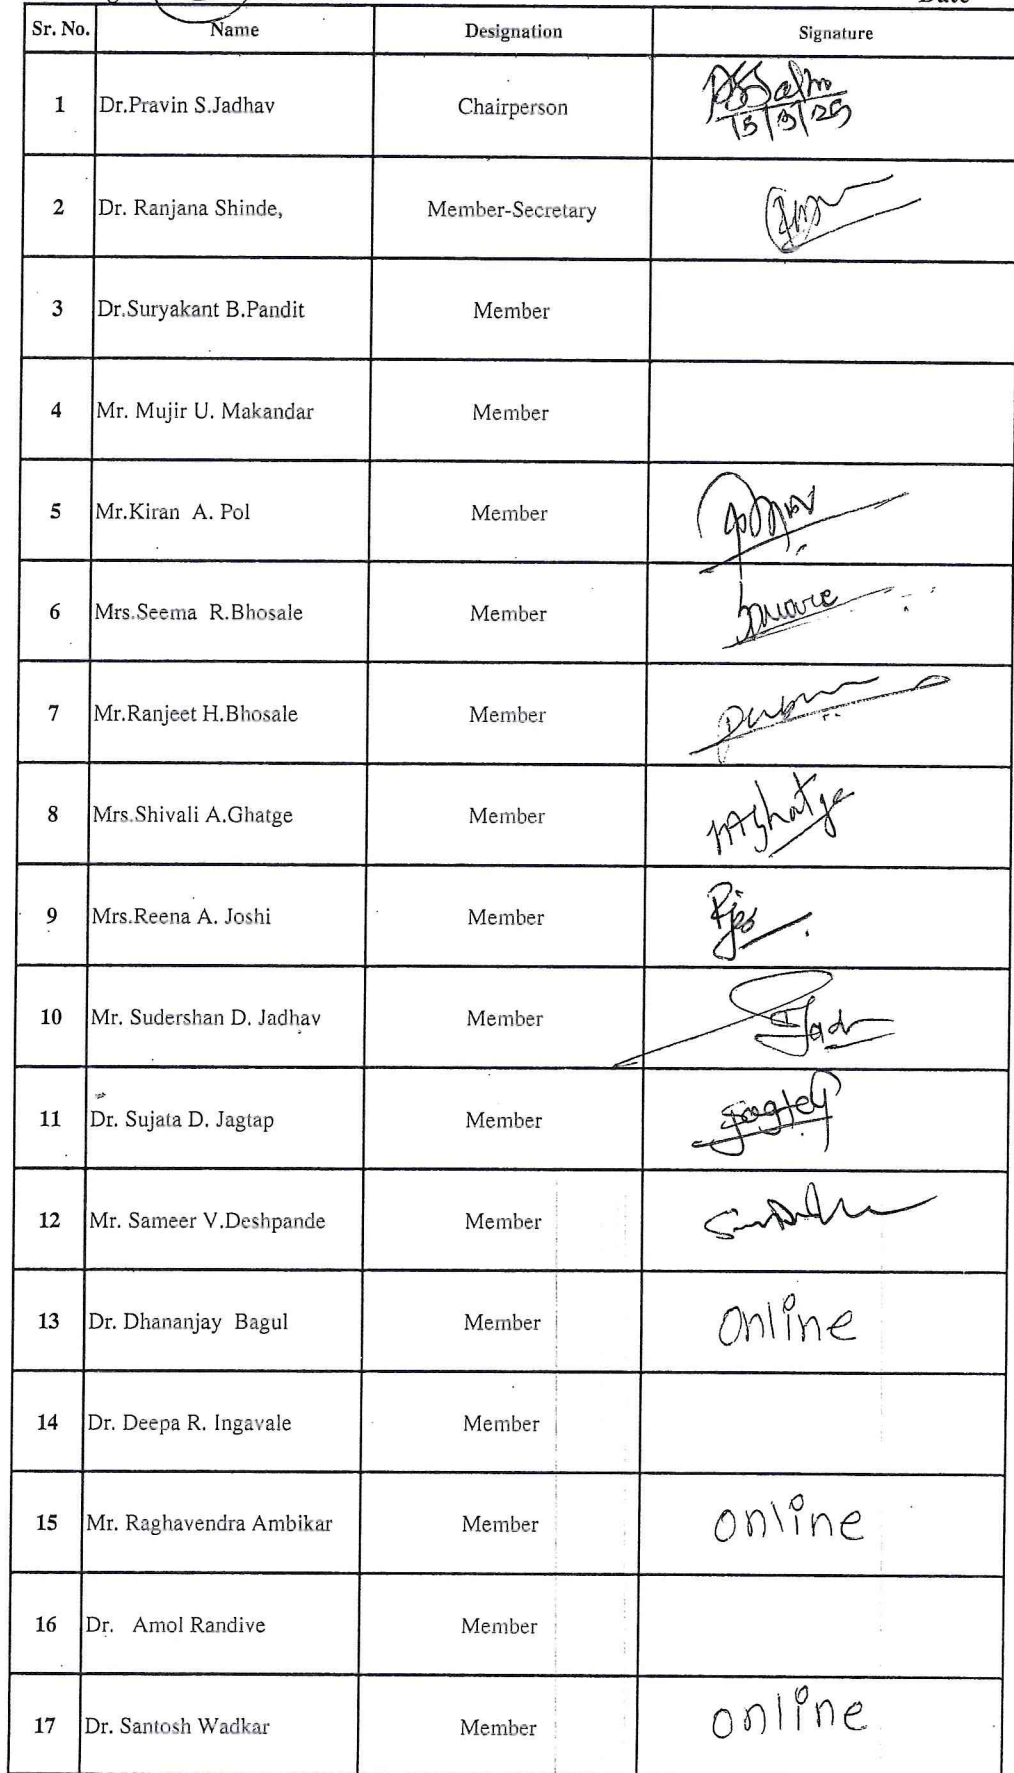 Date
Sr. No. Name Designation Signature
1 Dr.Pravin S.Jadhav Chairperson
15/3/25
2 Dr. Ranjana Shinde, Member-Secretary
3 Dr.Suryakant B.Pandit Member
4 Mr. Mujir U. Makandar Member
5 Mr.Kiran A. Pol Member
6 Mrs.Seema R.Bhosale Member
7 Mr.Ranjeet H.Bhosale Member
8 Mrs.Shivali A.Ghatge Member
9 Mrs.Reena A. Joshi Member
10 Mr. Sudershan D. Jadhav Member
11 Dr. Sujata D. Jagtap Member
12 Mr. Sameer V.Deshpande Member
13 Dr. Dhananjay Bagul Member online
14 Dr. Deepa R. Ingavale Member
15 Mr. Raghavendra Ambikar Member online
16 Dr. Amol Randive Member
17 Dr. Santosh Wadkar Member online